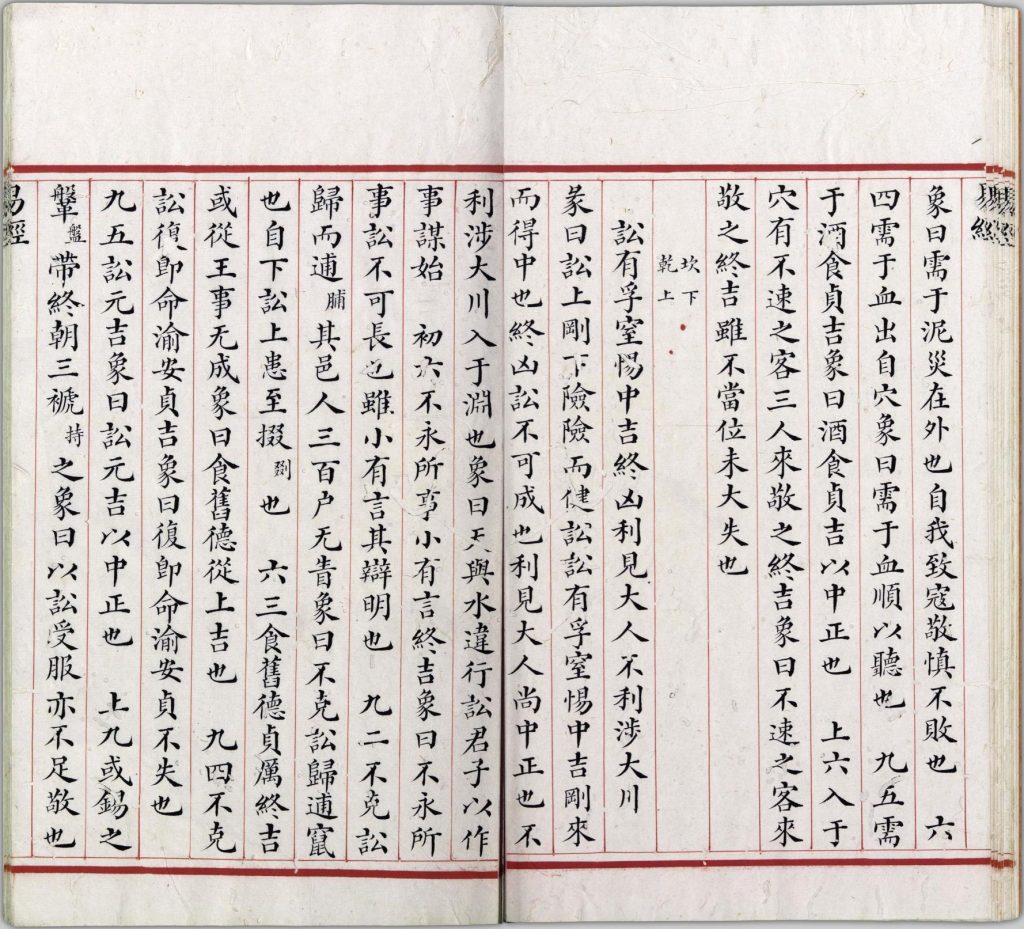 象曰需于泥災在外也自我致寇敬慎不敗也　六
四需于血出自穴象曰需于血順以聽也　九五需
于酒食貞吉象曰酒食貞吉以中正也　上六入于
穴有不速之客三人來敬之終吉象曰不速之客來
敬之終吉雖不當位未大失也
坎下
乾上
訟有孚窒惕中吉終凶利見大人不利涉大川
彖曰訟上剛下險險而健訟訟有孚窒惕中吉剛來
而得中也終凶訟不可成也利見大人尚中正也不
利涉大川入于淵也象曰天與水違行訟君子以作
事謀始　初六不永所事小有言終吉象曰不永所
事訟不可長也雖小有言其辯明也　九二不克訟
歸而逋脯其邑人三百户无眚象曰不克訟歸逋竄
也自下訟上患至掇剟也　六三食舊德貞厲終吉
或從王事无成象曰食舊德從上吉也　九四不克
訟復卽命渝安貞吉象曰復卽命渝安貞不失也
九五訟元吉象曰訟元吉以中正也　上九或錫之
鞶盤帶終朝三褫持之象曰以訟受服亦不足敬也
易經